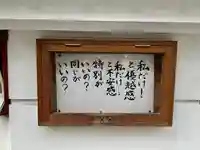 私だけ！
と優越感
私だけ…
と不安感
特別が
いいの？
同じが
いいの？